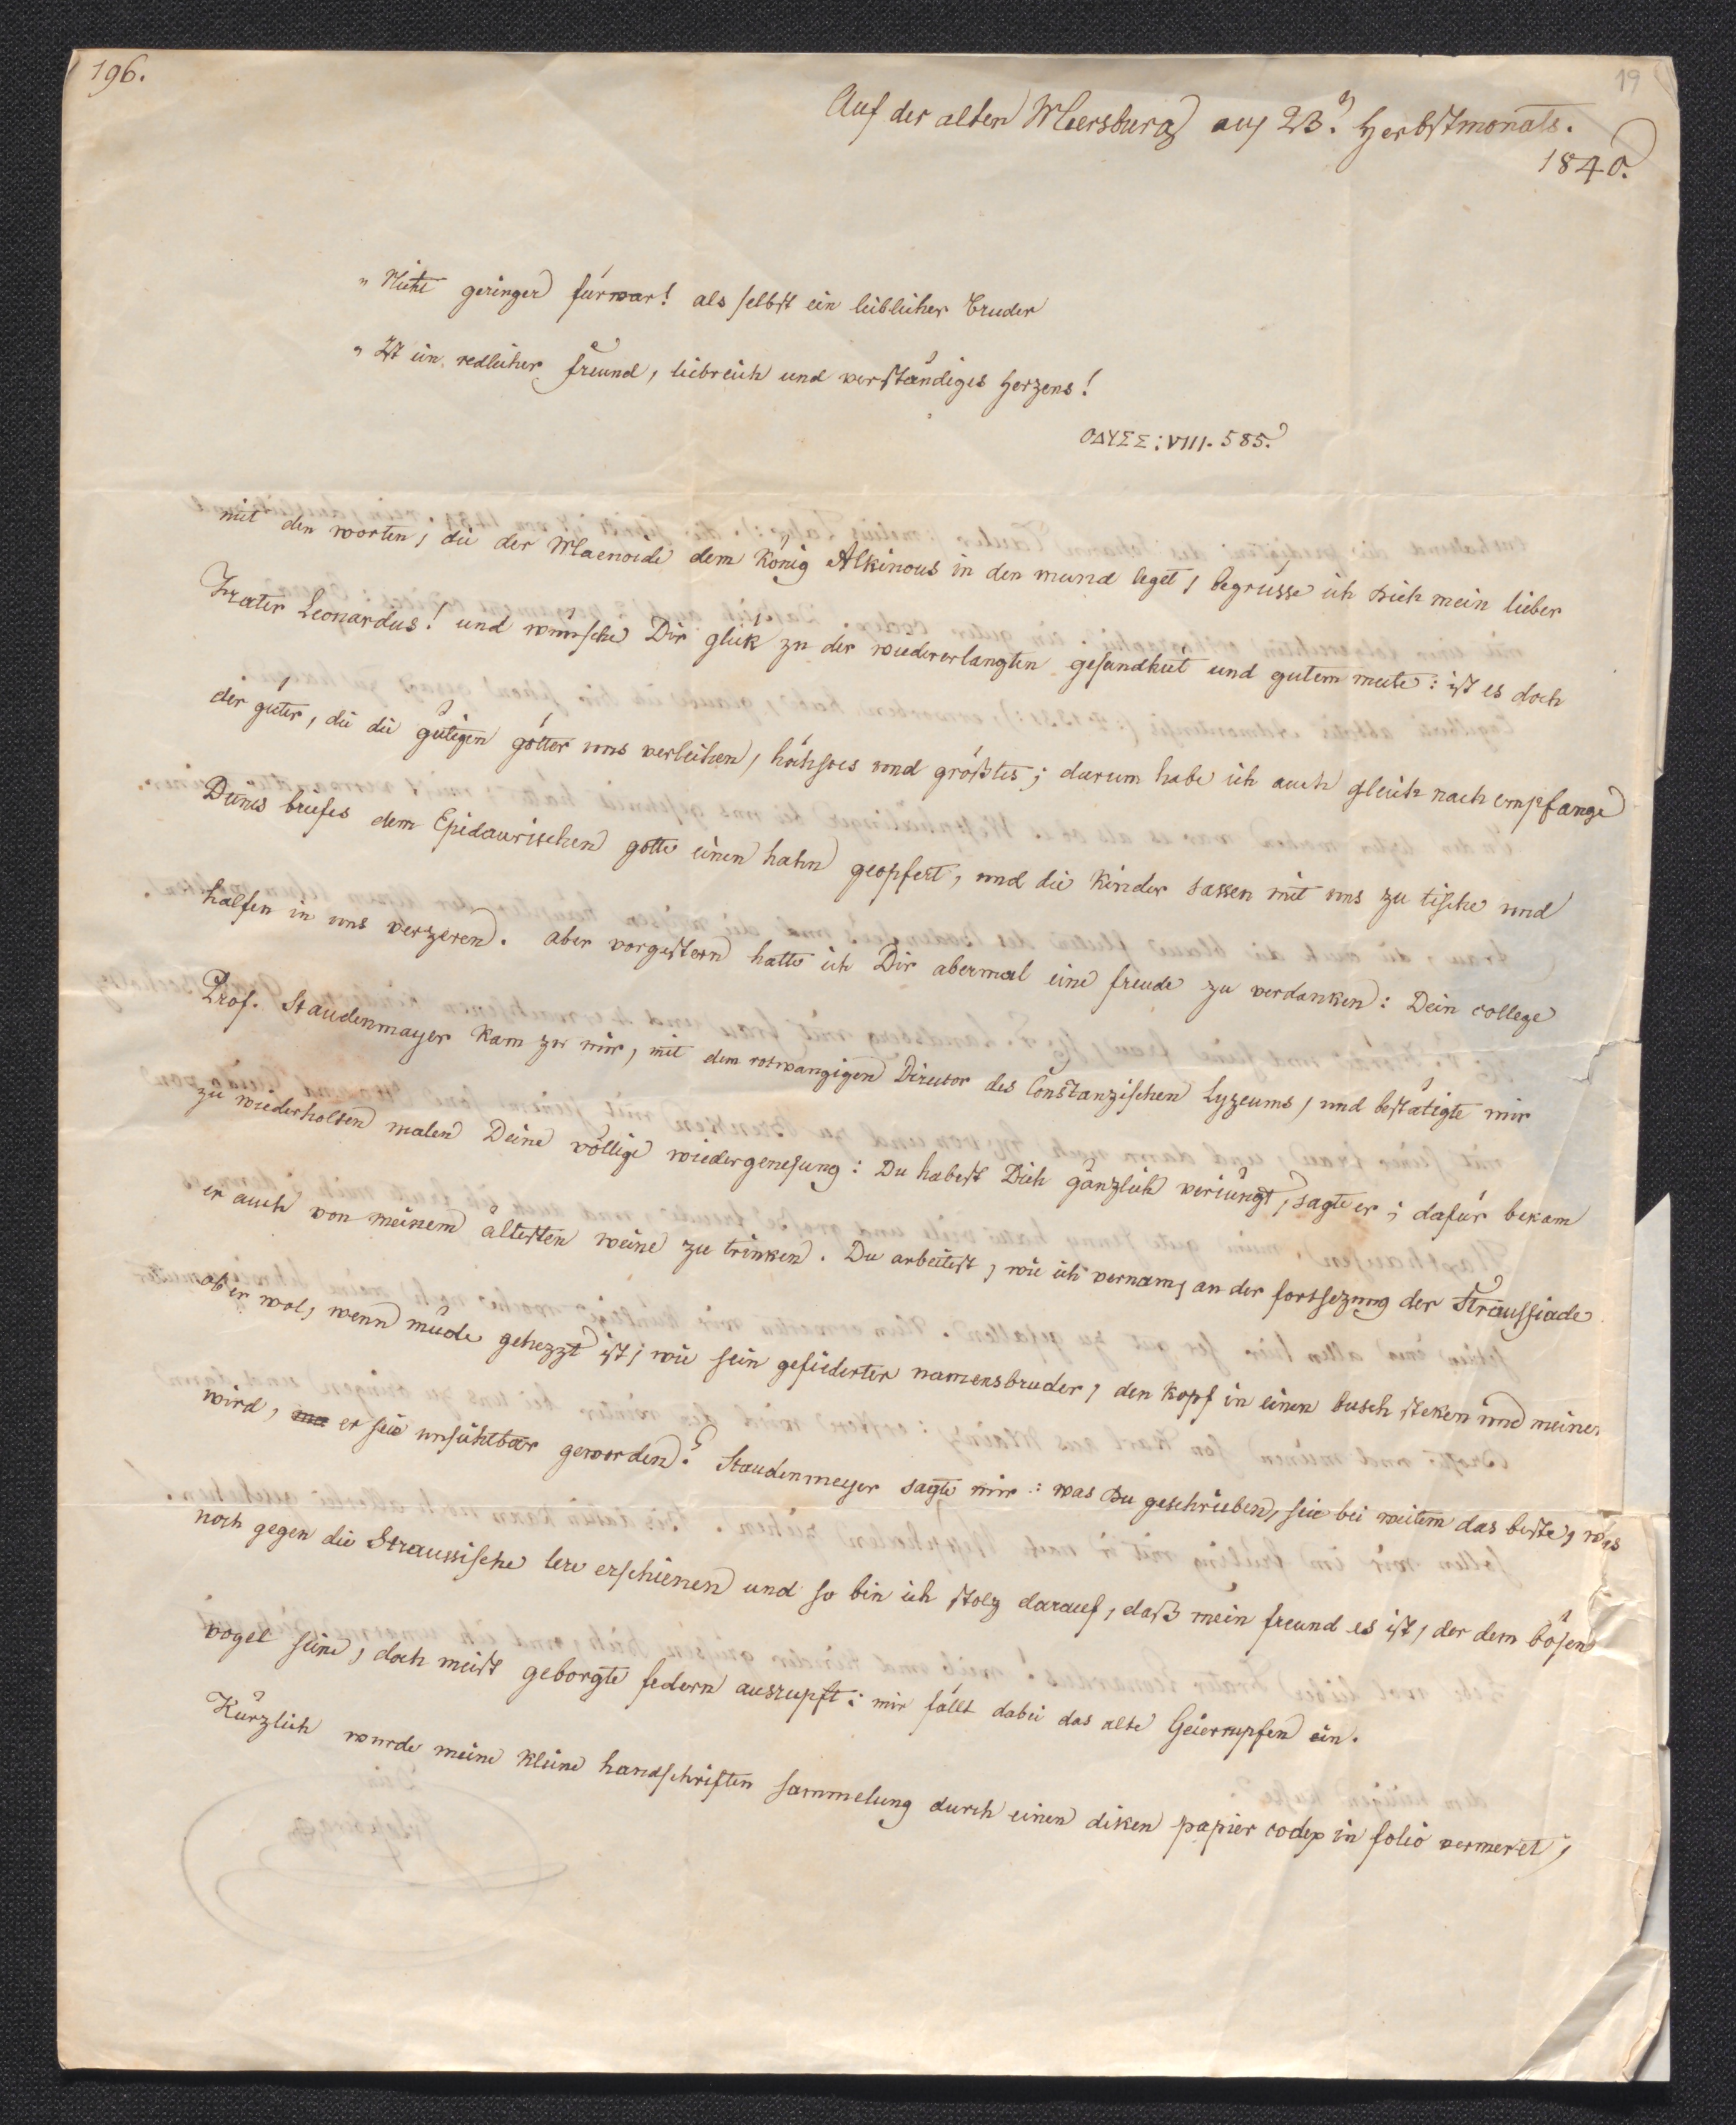 196.
19
Auf der alten Meersburg am 23.n Herbstmonats.
1840.
"Nicht geringer fürwar! als selbst ein leiblicher bruder
"Ist ein redlicher freund, liebreich und verständiges herzens!
ΟΔΥΣΣ: VIII. 585.
mit den worten, die der Maeonide dem König Alkinous in den mund leget, begrüsse ich Dich mein lieber
Frater Leonardus! und wünsche Dir glük zu der wiedererlangten gesundheit und gutem mute: ist es doch
der güter, die die gütigen götter uns verleihen, höchstes und größtes; darum habe ich auch gleich nach empfange
Deines briefes dem Epidaurischen gotte einen hahn geopfert, und die Kinder sassen mit uns zu tische und
halfen in uns verzeren. aber vorgestern hatte ich Dir abermal eine freude zu verdanken: Dein college
Prof. Staudenmayer kam zu mir, mit dem rotwangigen Director des Constanzischen Lyzeums, und bestätigte mir
zu wiederholten malen Deine völlige wiedergenesung: Du habest Dich gänzlich veriüngt, sagte er; dafür bekam
er auch von meinem ältesten weine zu trinken. Du arbeitest, wie ich vernam, an der fortsezung der Straussiade
ob er wol, wenn müde gehezzt ist, wie sein gefiederter namensbruder, den kopf in einen busch steken und meinen
wird, er seie unsichtbar geworden? Staudenmeyer sagte mir: was Du geschrieben, seie bei weitem das beste, was
noch gegen die Straussische lere erschienen und so bin ich stolz darauf, daß mein freund es ist, der dem bösen
vogel seine, doch meist geborgte federn auszupft: mir fällt dabei das alte Geierrupfen ein.
Kürzlich wurde meine kleine handschriften sammelung durch einen diken papier codex in folio vermeret,